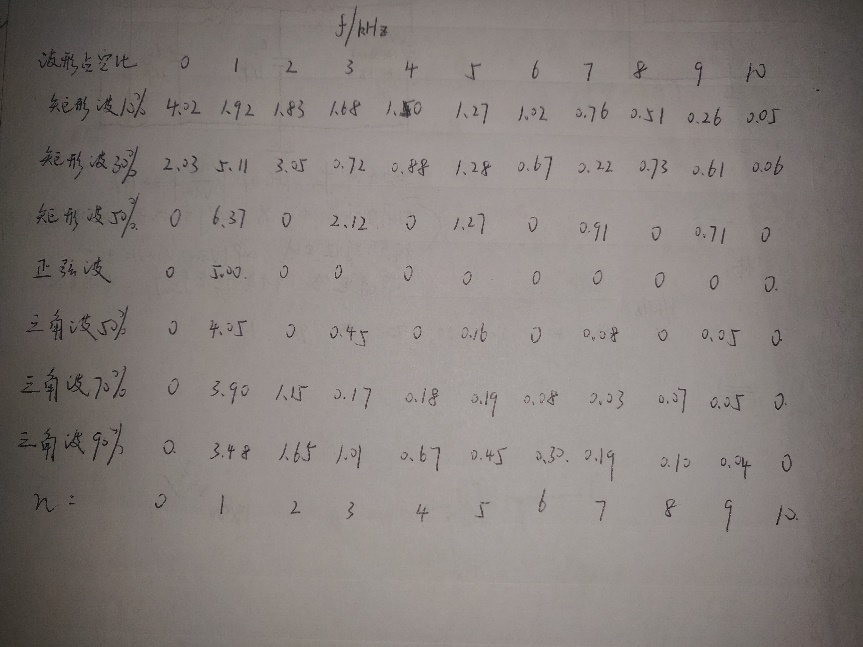 f/kHz
波形占空比 0 1 2 3 4 5 6 7 8 9 10
矩形波10% 4.02 1.92 1.83 1.68 1.50 1.27 1.02 0.76 0.51 0.26 0.05
矩形波30% 2.03 5.11 3.05 0.72 0.88 1.28 0.67 0.22 0.73 0.61 0.06
矩形波50% 0 6.37 0 2.12 0 1.27 0 0.91 0 0.71 0
正弦波 0 5.00 0 0 0 0 0 0 0 0 0.
三角波50% 0 4.05 0 0.45 0 0.16 0 0.08 0 0.05 0
三角波70% 0 3.90 1.15 0.17 0.18 0.19 0.08 0.03 0.07 0.05 0.
三角波90% 0. 3.48 1.65 1.01 0.67 0.45 0.30. 0.19 0.10 0.04 0
n: 0 1 2 3 4 5 6 7 8 9 10.